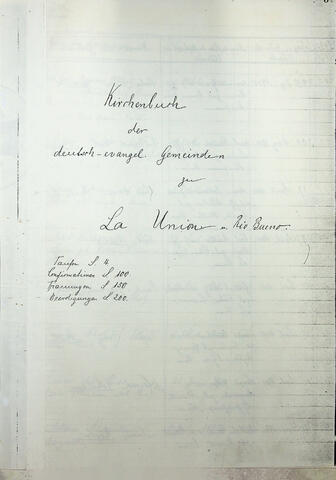 Kirchenbuch
der
deutsch-evangel. Gemeinden
zu
La Union u. Rio Bueno.
Taufen S. 4.
Confirmationen S. 100.
Trauungen S. 150
Beerdigungen S. 200.